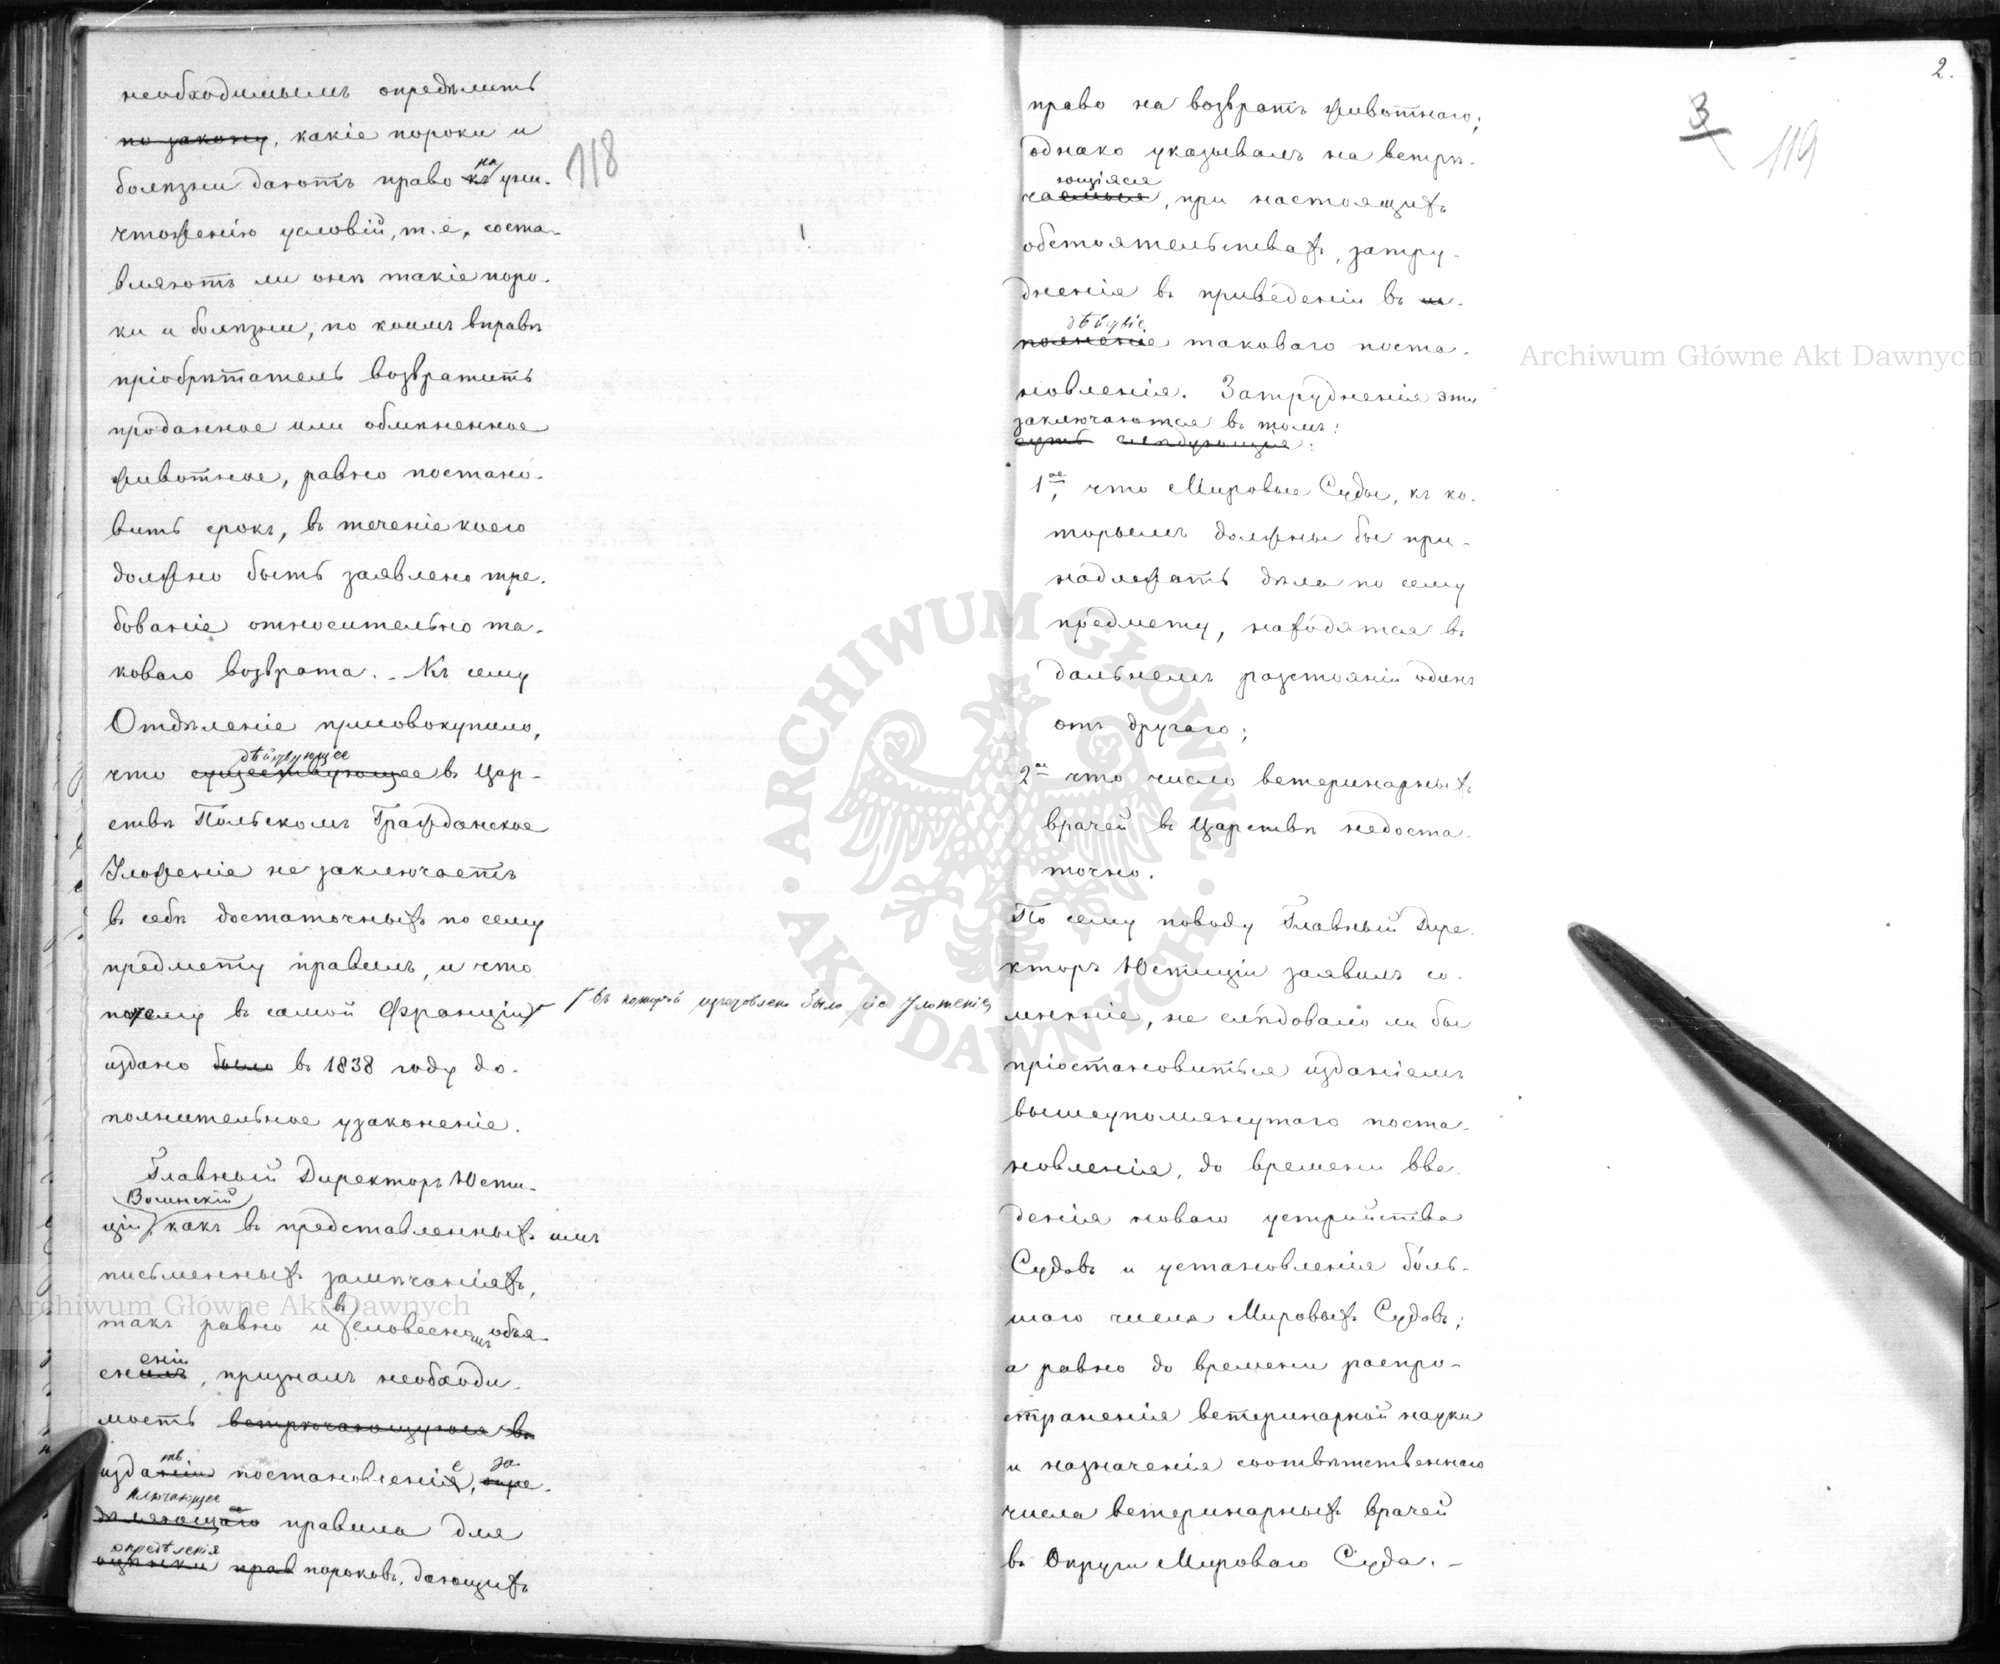 118
необходимымъ опредѣлить
по закону, какіе пороки и
на
болѣзни даютъ право къ уни-
чтоженію условій, т. е, соста-
вляютъ ли онѣ такіе поро-
ки и болѣзни, по коимъ вправѣ
пріобрѣтатель возвратить
проданное или обмѣненное
животное, равно постано-
вить срокъ, въ теченіе коего
должно быть заявлено тре-
бованіе относительно та-
коваго возврата. - Къ сему
Отдѣленіе присовокупило,
дѣйствующее
что существующее въ Цар-
ствѣ Польскомъ Гражданское
Уложеніе не заключаетъ
въ себѣ достаточныхъ по сему
предмету правилъ, и что
почему въ самой Франціи
въ которой изготовлено было сіе Уложеніе,
издано было въ 1838 году до-
полнительное узаконеніе.
Главный Директоръ Юсти-
Волинскій
ціи какъ въ представленныхъ имъ
письменныхъ замѣчаніяхъ,
въ
такъ равно и словесномъ объя-
еніи
снилъ, призналъ необходи-
мость встрѣчающуюся въ
ть за
изданіи постановленіе, опре-
ключающее
дѣляющаго правила для
опредѣленія
оцѣнки прав пороковъ, дающихъ
2.
3
119
право на возвратъ животнаго;
однако указывалъ на встрѣ-
ющіяся
чаемыя, при настоящихъ
обстоятельствахъ, затру-
дненія въ приведеніи въ ис-
дѣйствіе
полненіе таковаго поста-
новленія. Затрудненія эти
заключаются въ томъ:
суть слѣдующія:
1ое, что Мировые Суды, къ ко-
торымъ должны бы при-
надлежать дѣла по сему
предмету, находятся въ
дальнемъ разстояніи одинъ
отъ другаго;
2ое что число ветеринарныхъ
врачей въ Царствѣ недоста-
точно.
По сему поводу Главный Дире-
кторъ Юстиціи заявилъ со-
мнѣніе, не слѣдовало ли бы
пріостановиться изданіемъ
вышеупомянутаго поста-
новленія, до времени вве-
денія новаго устройства
Судовъ и установленія боль-
шаго числа Мировыхъ Судовъ;
а равно до времени распро-
страненія ветеринарной науки
и назначенія соотвѣтственнаго
числа ветеринарныхъ врачей
въ Округи Мироваго Суда. -
Archiwum Główne Akt Dawnych
Archiwum Główne Akt Dawnych
ARCHIWUM GŁÓWNE AKT DAWNYCH